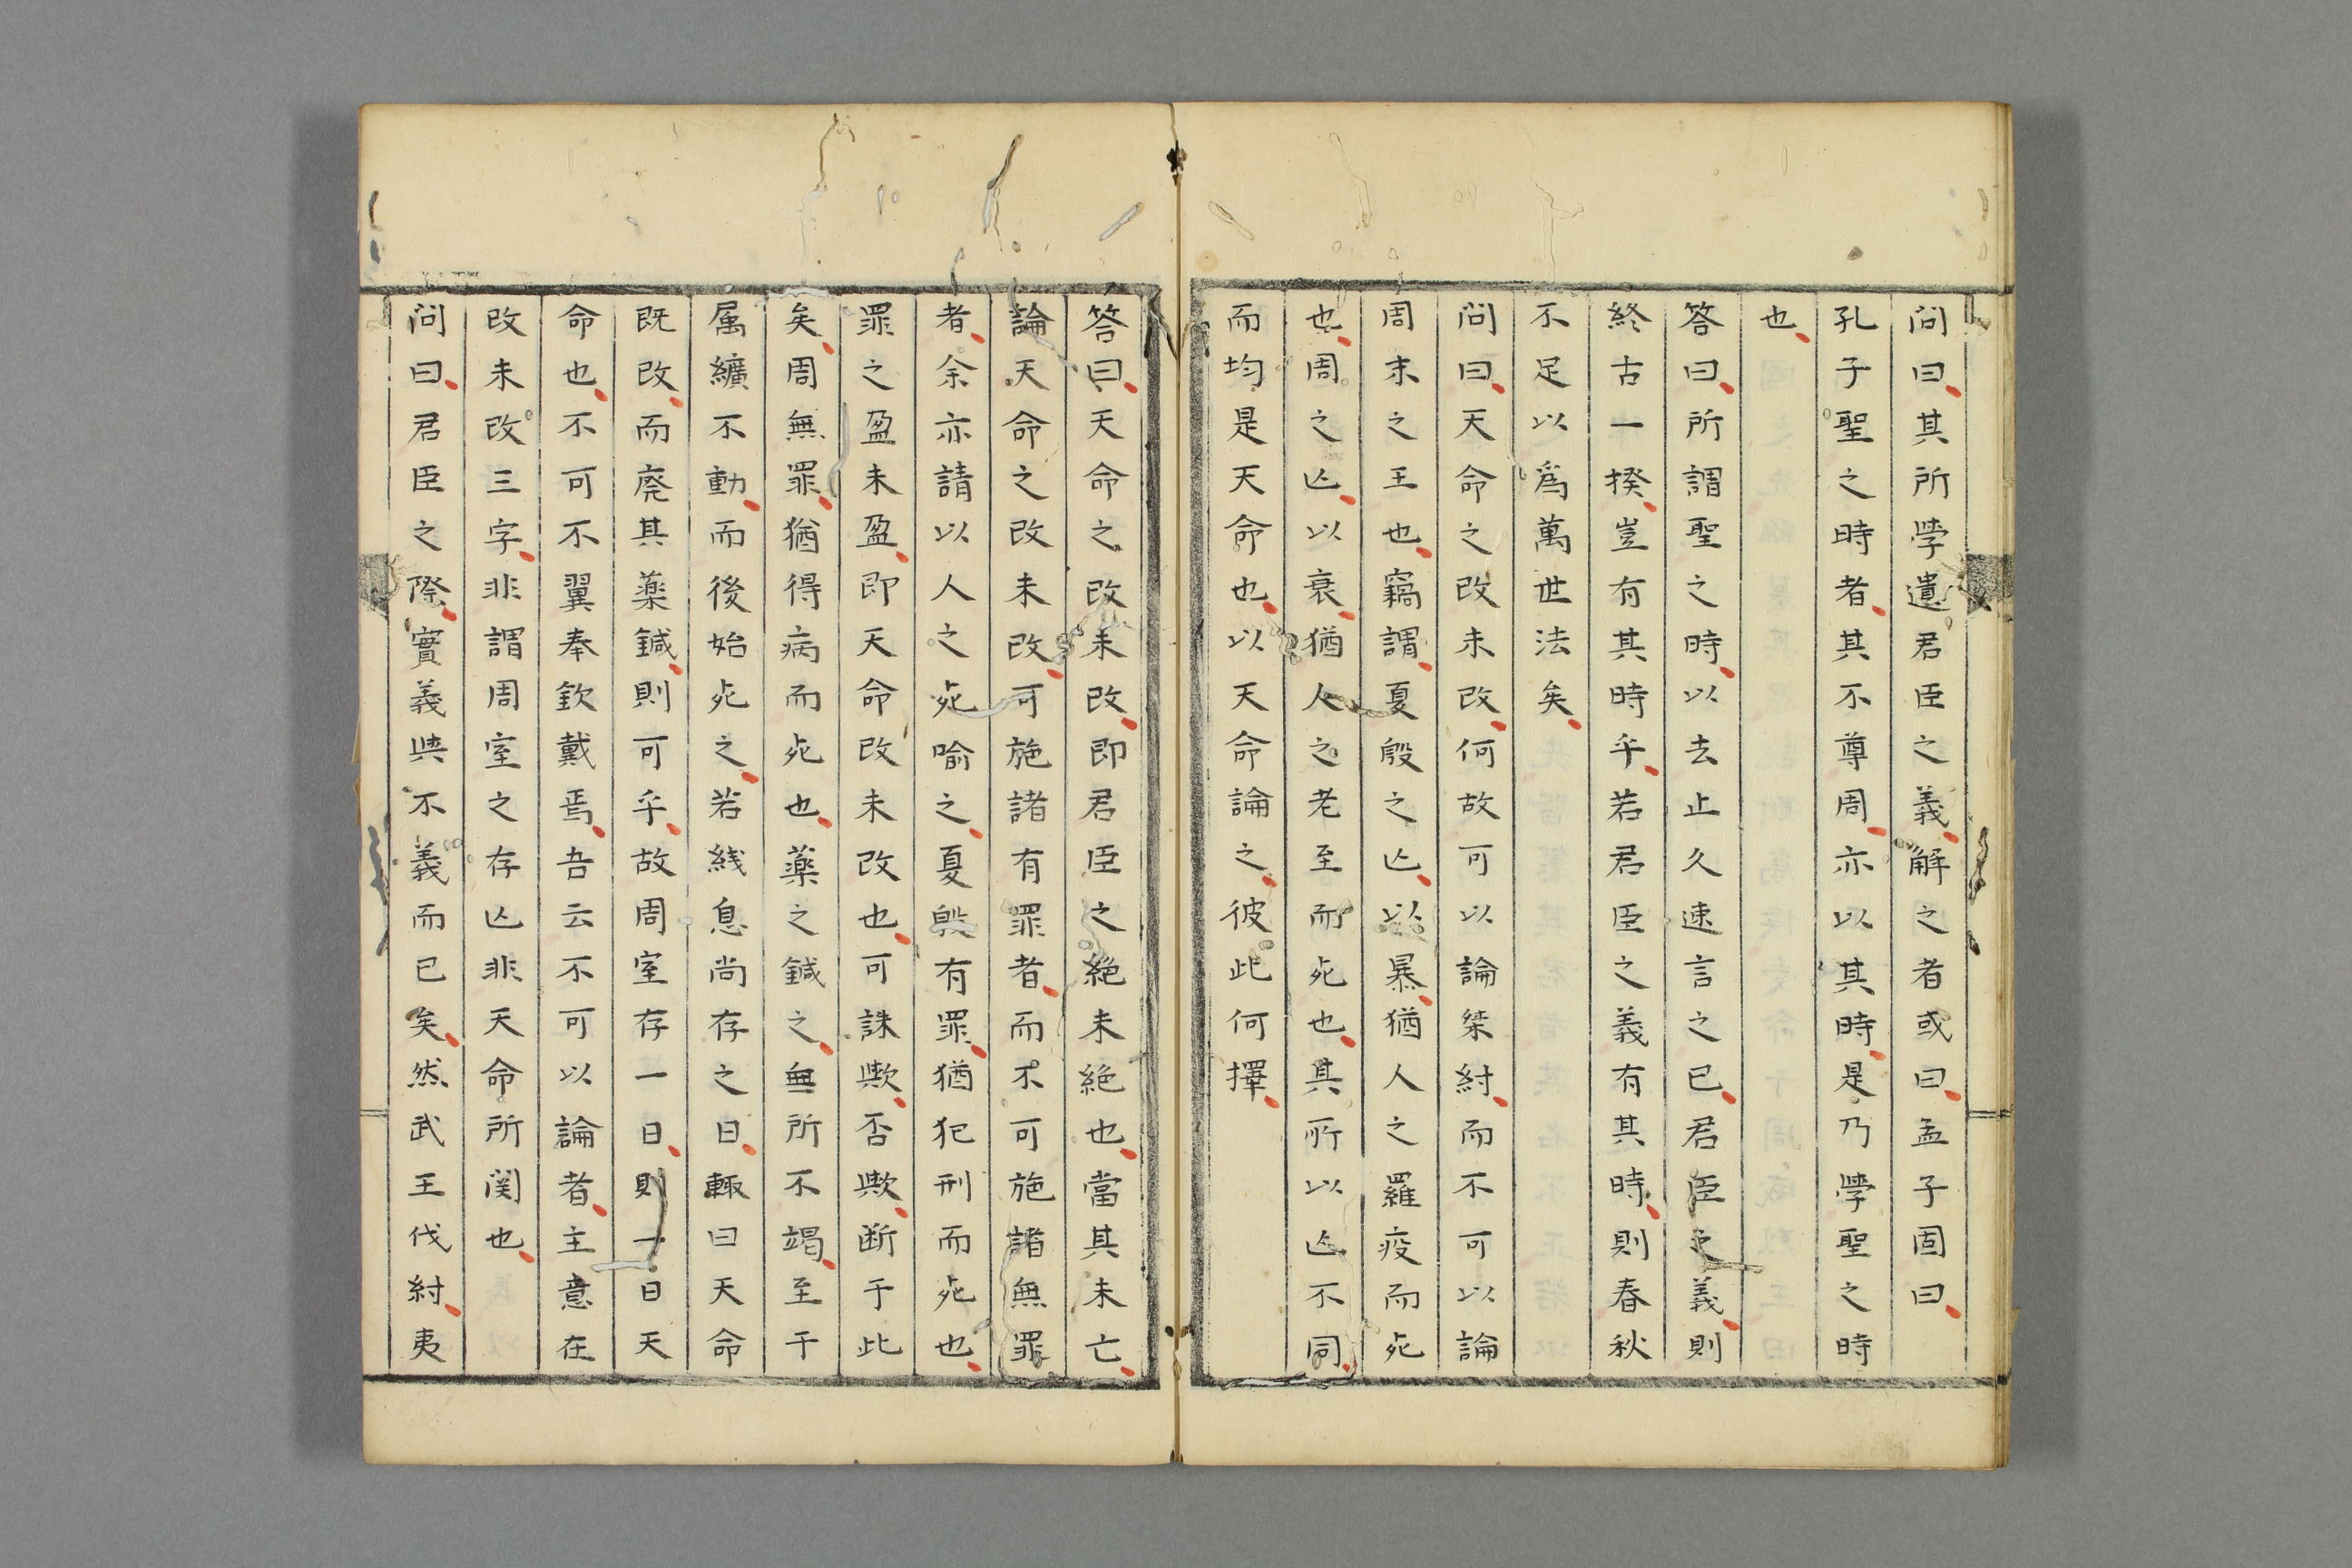 問曰其所學遺君臣之義解之者或曰孟子固曰
孔子聖之時者其不尊周亦以其時是乃學聖之時
也
答曰所謂聖之時以去止久速言之已君臣之義則
終古一揆豈有其時乎若君臣之義有其時則春秋
不足以爲萬世法矣
問曰天命之改未改何故可以論桀紂而不可以論
周末之王也竊謂夏殷之亾以暴猶人之羅疫而死
也周之亾以衰猶人之老至而死也其所以亾不同
而均是天命也以天命論之彼此何擇
答曰天命之改未改即君臣之絶未絶也當其未亡
論天命之改未改可施諸有罪者而不可施諸無罪
者余亦請以人之死喩之夏殷有罪猶犯刑而死也
罪之盈未盈即天命改未改也可誅歟否歟断于此
矣周無罪猶得病而死也藥之鍼之無所不竭至于
属纊不動而後始死之若綫息尚存之日輙曰天命
既改而廃其薬鍼則可乎故周室存一日則一日天
命也不可不翼奉欽戴焉吾云不可以論者主意在
改未改三字非謂周室之存亾非天命所関也
問曰君臣之際實義與不義而已矣然武王伐紂夷